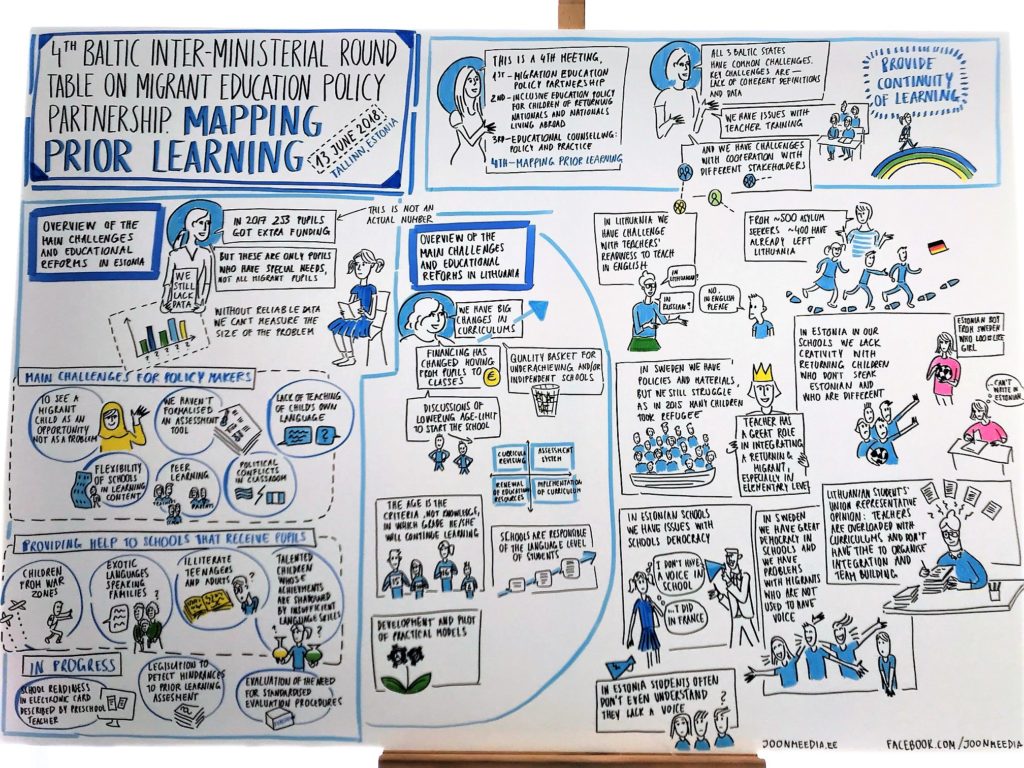 4TH BALTIC INTER-MINISTERIAL ROUND
TABLE ON MIGRANT EDUCATION POLICY
PARTNERSHIP. MAPPING
PRIOR LEARNING
13 JUNE 2018
TALLINN, ESTONIA
THIS IS A 4TH MEETING,
1ST - MIGRATION EDUCATION
POLICY PARTNERSHIP
2ND - INCLUSIVE EDUCATION POLICY
FOR CHILDREN OF RETURNING
NATIONALS AND NATIONALS
LIVING ABROAD
3RD - EDUCATIONAL COUNSELLING:
POLICY AND PRACTICE
4TH - MAPPING PRIOR LEARNING
ALL 3 BALTIC STATES
HAVE COMMON CHALLENGES.
KEY CHALLENGES ARE -
LACK OF COHERENT DEFINITIONS
AND DATA
WE HAVE ISSUES WITH
TEACHER TRAINING
AND WE HAVE CHALLENGES
WITH COOPERATION WITH
DIFFERENT STAKEHOLDERS
PROVIDE
CONTINUITY
OF LEARNING
OVERVIEW OF THE
MAIN CHALLENGES
AND EDUCATIONAL
REFORMS IN ESTONIA
IN 2017 253 PUPILS
GOT EXTRA FUNDING
THIS IS NOT AN
ACTUAL NUMBER
BUT THESE ARE ONLY PUPILS
WHO HAVE SPECIAL NEEDS,
NOT ALL MIGRANT PUPILS
WE
STILL
LACK
DATA
WITHOUT RELIABLE DATA
WE CAN'T MEASURE THE
SIZE OF THE PROBLEM
MAIN CHALLENGES FOR POLICY MAKERS
TO SEE A
MIGRANT
CHILD AS AN
OPPORTUNITY
NOT AS A PROBLEM
WE HAVEN'T
FORMALISED
AN ASSESSMENT
TOOL
LACK OF TEACHING
OF CHILD'S OWN
LANGUAGE
FLEXIBILITY
OF SCHOOLS
IN LEARNING
CONTENT
PEER
LEARNING
TEACHERS
PARENTS
POLITICAL
CONFLICTS
IN CLASSROOM
PROVIDING HELP TO SCHOOLS THAT RECEIVE PUPILS
CHILDREN
FROM WAR
ZONES
EXOTIC
LANGUAGES
SPEAKING
FAMILIES
ILLITERATE
TEENAGERS
AND ADULTS
TALENTED
CHILDREN
WHOSE
ACHIEVMENTS
ARE
BY INSUFFICIENT
LANGUAGE SKILLS
IN PROGRESS
SCHOOL READINESS
IN ELECTRONIC CARD
DESCRIBED BY PRESCHOOL
TEACHER
LEGISLATION TO
DETECT HINDRANCES
TO PRIOR LEARNING
ASSESMENT
EVALUATION OF THE NEED
FOR STANDARDISED
EVALUATION PROCEDURES
OVERVIEW OF THE
MAIN CHALLENGES
AND EDUCATIONAL
REFORMS IN LITHUANIA
WE HAVE BIG
CHANGES IN
CURRICULUMS
FINANCING HAS
CHANGED MOVING
FROM PUPILS TO
CLASSES
€
QUALITY BASKET FOR
UNDERACHIEVING AND/OR
INDIPENDENT SCHOOLS
DISCUSSIONS OF
LOWERING AGE-LIMIT
TO START THE SCHOOL
CURRICULA
REVISING
ASSESSMENT
SYSTEM
RENEWAL OF
EDUCATION
RESOURCES
IMPLEMENTATION
OF CURRICULUM
THE AGE IS THE
CRITERIA, NOT KNOWLEDGE,
IN WHICH GRADE HE/SHE
WILL CONTINUE LEARNING
15
15
16
16
SCHOOLS ARE RESPONSIBLE
OF THE LANGUAGE LEVEL
OF STUDENTS
DEVELOPMENT AND PILOT
OF PRACTICAL MODELS
IN LITHUANIA WE
HAVE CHALLENGE
WITH TEACHERS'
READINESS TO TEACH
IN ENGLISH
IN
LITHUANIAN?
IN
RUSSIAN?
NO.
IN ENGLISH
PLEASE
FROM ~500 ASYLUM
SEEKERS ~400 HAVE
ALREADY LEFT
LITHUANIA
IN SWEDEN WE HAVE
POLICIES AND MATERIALS,
BUT WE STILL STRUGGLE
AS IN 2015 MANY CHILDREN
TOOK REFUGEE
TEACHER HAS
A GREAT ROLE
IN INTEGRATING
A RETURNING
MIGRANT,
ESPECIALLY IN
ELEMENTARY LEVEL
IN ESTONIA IN OUR
SCHOOLS WE LACK
CRATIVITY WITH
RETURNING CHILDREN
WHO DON'T SPEAK
ESTONIAN AND
WHO ARE DIFFERENT
ESTONIAN BOY
FROM SWEDEN
WHO LOOKS LIKE
GIRL
CAN'T
WRITE IN
ESTONIAN
IN ESTONIAN SCHOOLS
WE HAVE ISSUES WITH
SCHOOLS DEMOCRACY
I DON'T HAVE
A VOICE IN
SCHOOL
...I DID
IN FRANCE
IN SWEDEN
WE HAVE GREAT
DEMOCRACY IN
SCHOOLS AND
WE HAVE
PROBLEMS
WITH MIGRANTS
WHO ARE
NOT USED
TO HAVE
VOICE
LITHUANIAN STUDENTS'
UNION REPRESENTATIVE
OPINION: TEACHERS
ARE OVERLOADED WITH
CURRICULUMS AND DON'T
HAVE TIME TO ORGANISE
INTEGRATION AND
TEAM BUILDING
IN ESTONIA STUDENTS OFTEN
DON'T EVEN UNDERSTAND
THEY LACK A VOICE
JOONMEEDIA.EE
FACEBOOK.COM/JOONMEEDIA